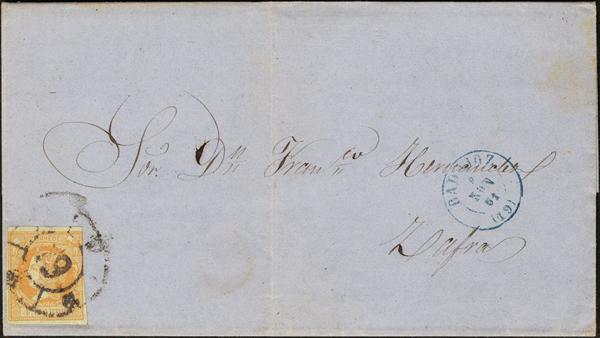 Sor. Dn Franco Hernandez
Zafra
BADAJOZ
NOV
61
(19)
19